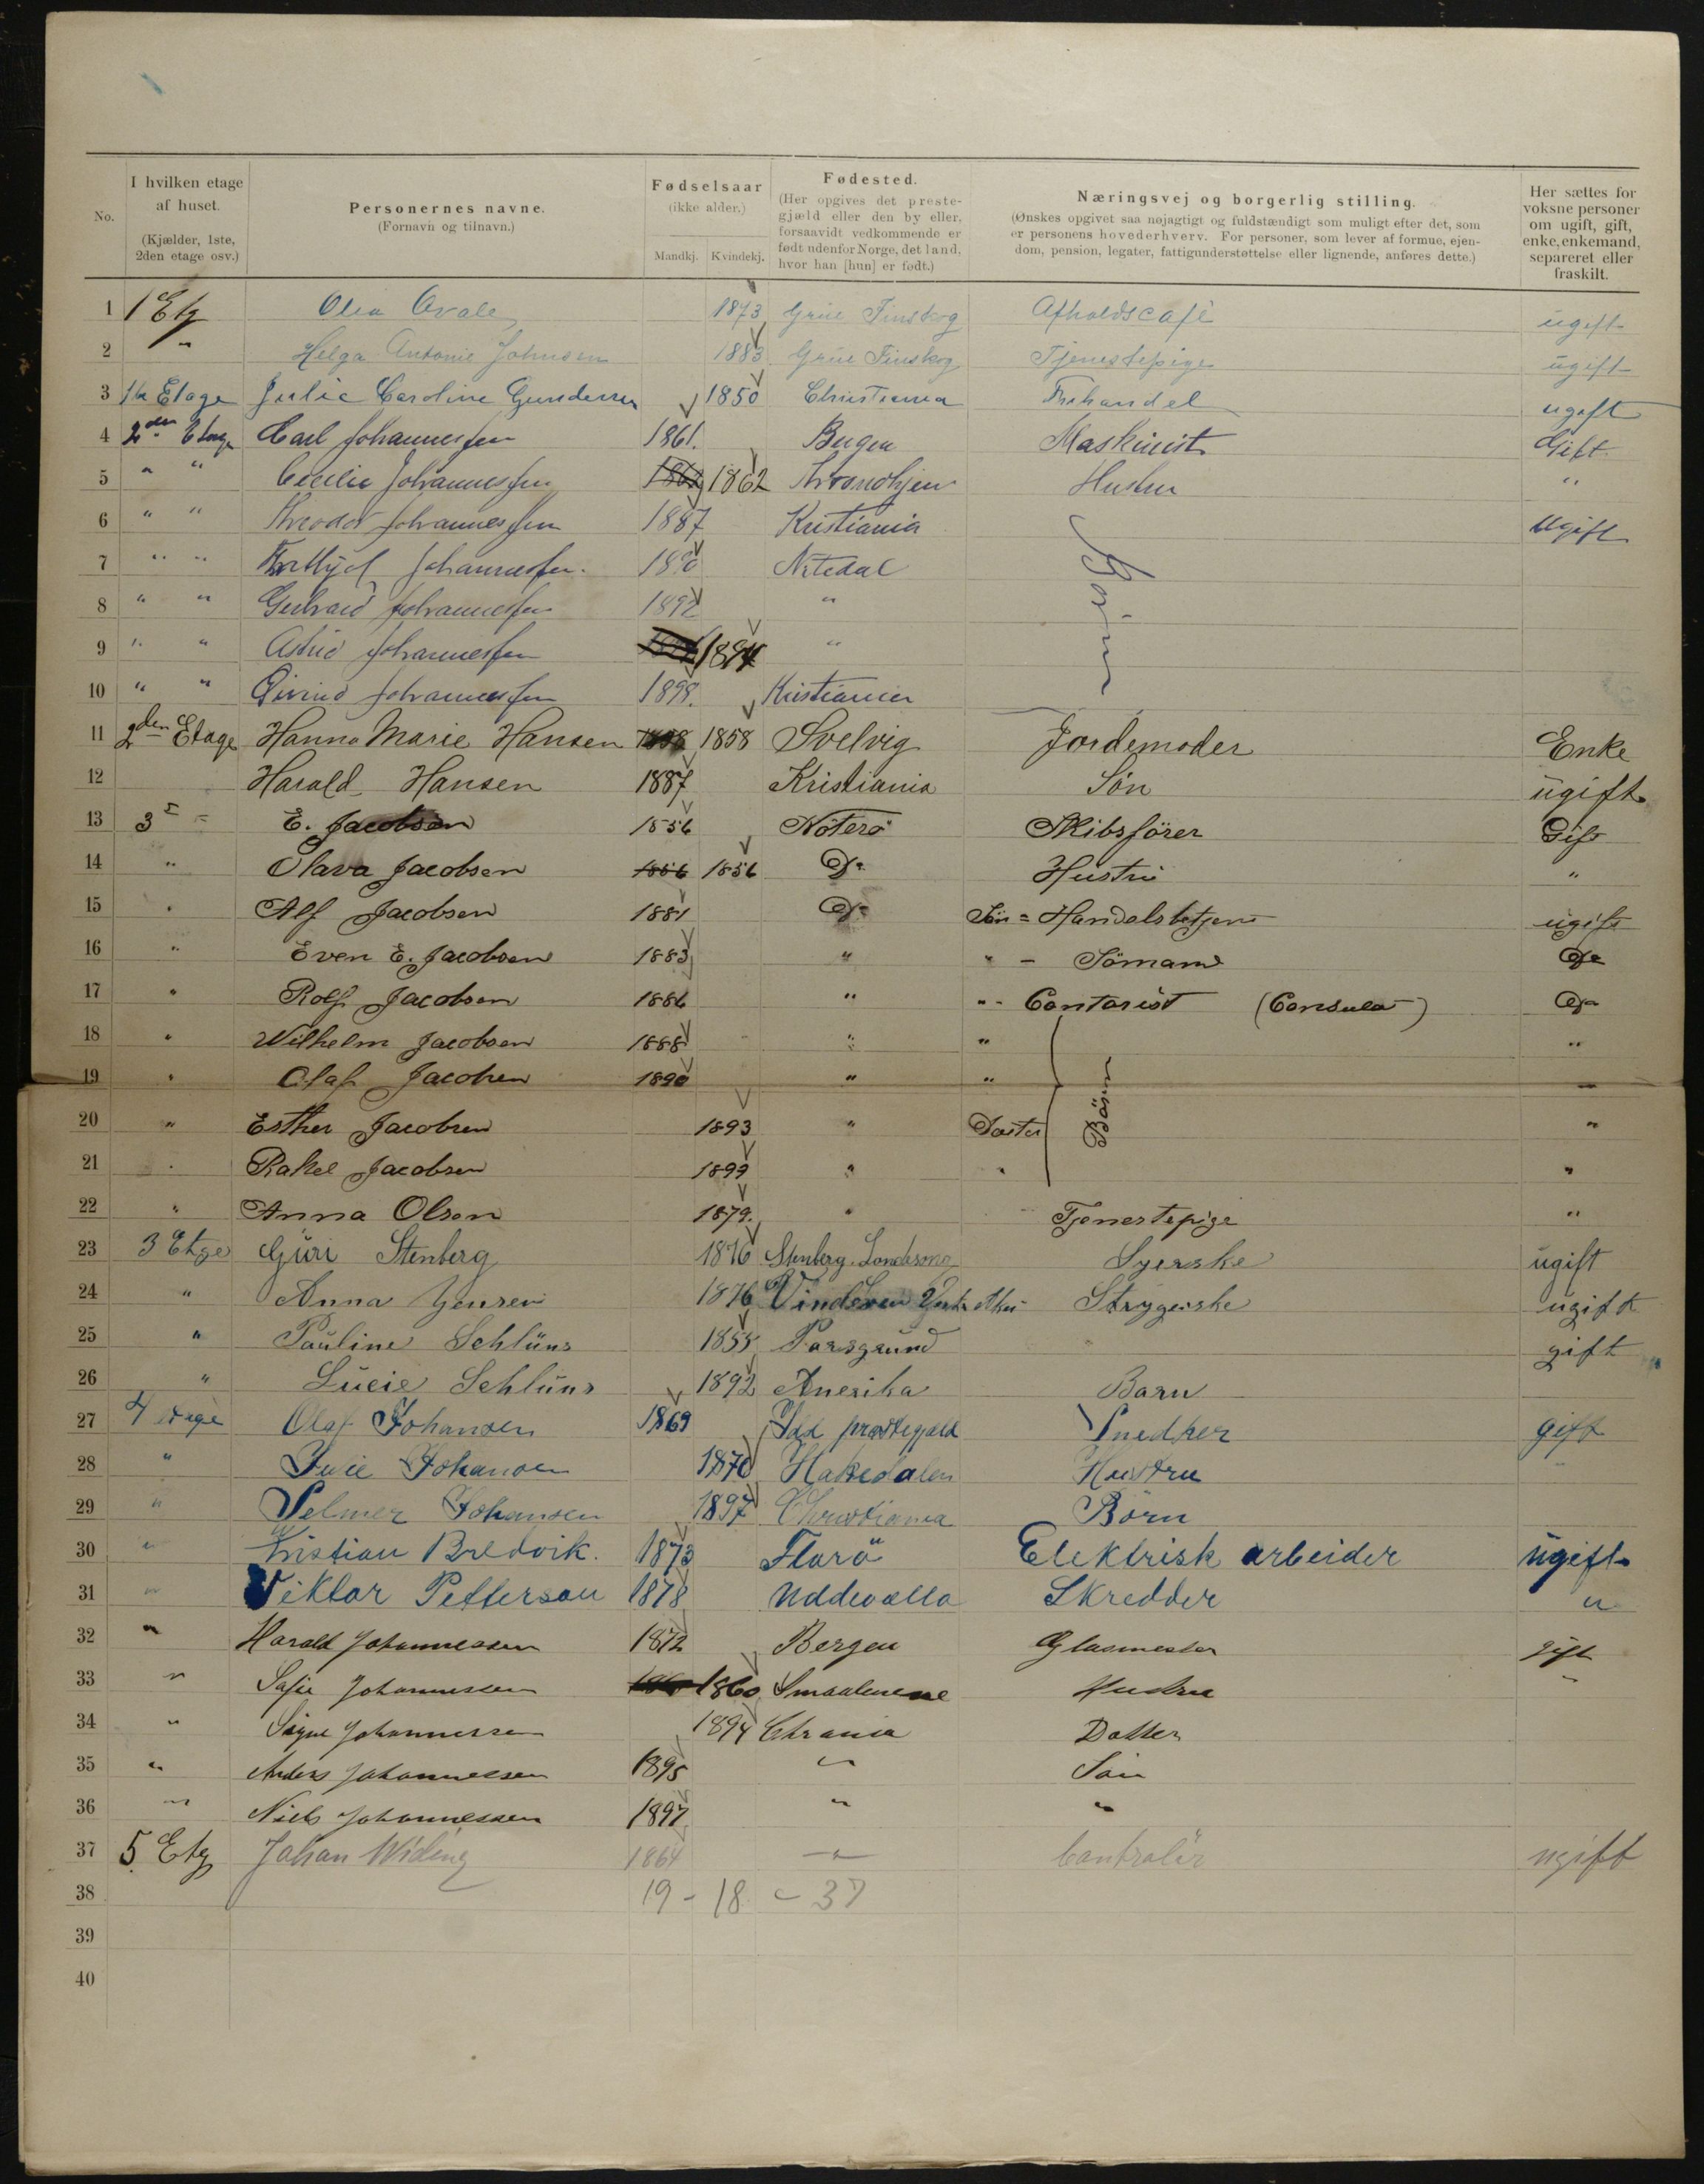 No.
I hvilken etage af huset. (Kjælder, 1ste, 2den etage osv.)
Personernes navne. (Fornavn og tilnavn.)
Fødselsaar (ikke alder.) Mandkj. Kvindekj.
Fødested. (Her opgives det prestegjæld eller den by eller, forsaavidt vedkommende er født udenfor Norge, det land, hvor han [hun] er født.)
Næringsvej og borgerlig stilling. (Ønskes opgivet saa nøjagtigt og fuldstændigt som muligt efter det, som er personens hovederhverv. For personer, som lever af formue, ejendom, pension, legater, fattigunderstøttelse eller lignende, anføres dette.)
Her sættes for voksne personer om ugift, gift, enke, enkemand, separeret eller fraskilt.
1 1 Etg Olea 1873 Grue Finskog Afholdscafé ugift
2 " Helga Antonie Johnsen 1883 Grue Finskog Tjenestepige ugift
3 1ste Etage Julie Caroline Gundersen 1850 Christiania ugift
4 2den Etage Carl Johannessen 1861. Bergen Maskinist Gift
5 " " Cecilie Johannessen 1862 Throndhjem Hustru "
6 " " Theodor Johannessen 1887 Kristiania Ugift
7 " " Johannessen. 1890 Nitedal Børn
8 " " Johannessen 1892 "
9 " " Astrid Johannessen 1894 "
10 " " Øivind Johannessen 1898. Kristiania
11 2den Etage Hanna Marie Hansen 1858 Svelvig Jordemoder Enke
12 Harald Hansen 1887 Kristiania Søn ugift
13 3 E. Jacobsen 1856 Nöterö Skibsförer Gift
14 " Olava Jacobsen 1856 1856 Do Hustru "
15 " Alf Jacobsen 1881 Do Sön = Handelsbetjent ugift
16 " Even E. Jacobsen 1883 " " - Sömand Do
17 " Rolf Jacobsen 1886 " " - Contorist (Consulat) Do
18 " Wilhelm Jacobsen 1888 " " "
19 " Olaf Jacobsen 1890 " " Börn "
20 " Esther Jacobsen 1893 " Datter "
21 " Rakel Jacobsen 1899 " " "
22 " Anna Olsen 1879. " Tjenestepige "
23 3 Etge Guri Stenberg 1876 Stenberg Syerske ugift
24 " Anna Jensen 1876 Vinderen Strygerske ugift
25 " Pauline Schlüns 1855 Porsgrund " gift
26 " Lucie Schlüns 1892 Amerika Barn
27 4 etage Olaf Johansen 1869 Idd prestegjeld Snedker gift
28 " Julie Johansen 1870 Hakedalen Hustru "
29 " Selmer Johansen 1897 Christiania Börn
30 " Kristian Bredvik. 1873 Florö Elektrisk arbeider ugift
31 " Viktor Petterson 1878 Uddevalla Skredder "
32 " Harald Johannessen 1872 Bergen Glasmester gift
33 " Sofie Johannessen 1860 Smaalenene Hustru "
34 " Signe Johannessen 1894 Chrania Datter
35 " Anders Johannessen 1895 " Sön
36 " Niels Johannessen 1897 " "
37 5 Etg Johan Widing 1864 " Controlör ugift
38 19 - 18 - 37
39
40